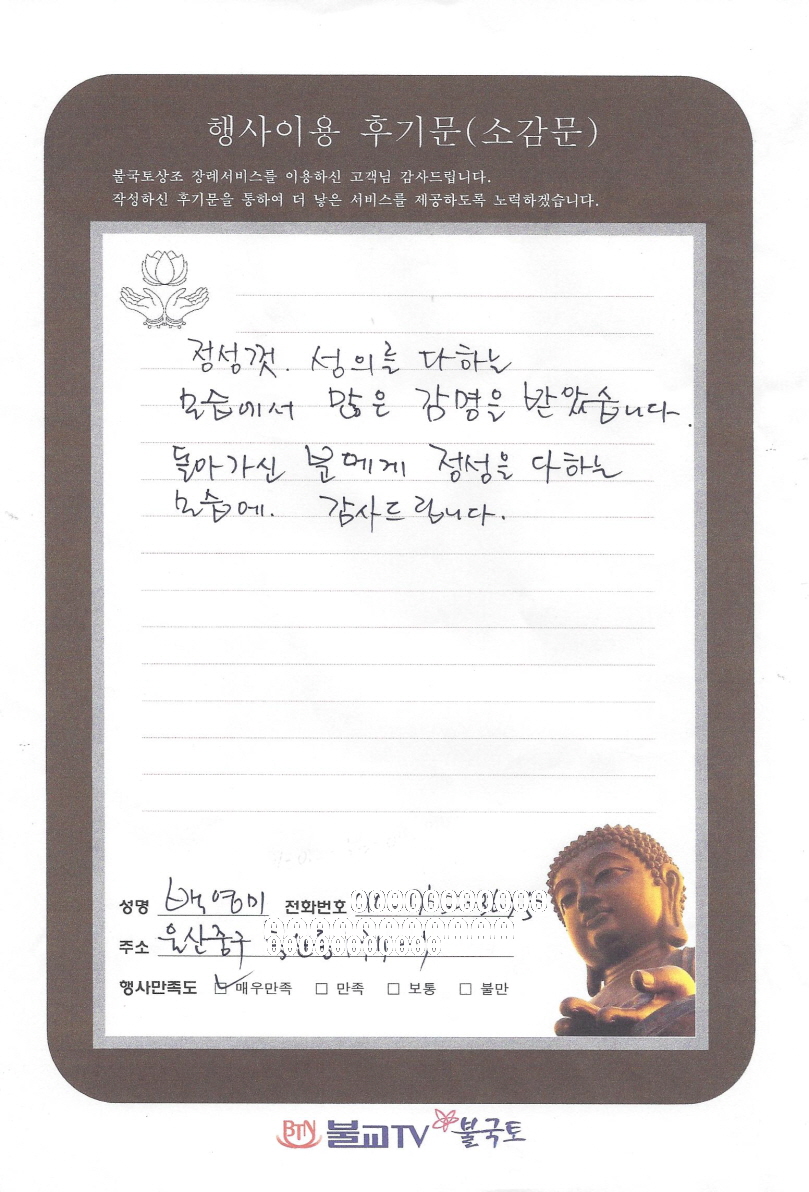 행사이용 후기문(소감문)
불국토상조 장례서비스를 이용하신 고객님 감사드립니다.
작성하신 후기문을 통하여 더 낳은 서비스를 제공하도록 노력하겠습니다.
정성껏. 성의를 다하는
모습에서 많은 감명을 받았습니다.
돌아가신 분에게 정성을 다하는
모습에. 감사드립니다.
성명 백영미 전화번호
주소 울산중구
행사만족도 ☑ 매우만족 □ 만족 □ 보통 □ 불만
BTN 불교TV 불국토